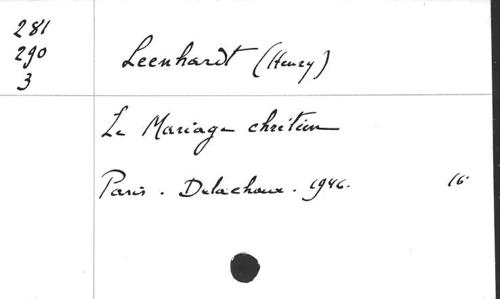 281
290
3
Leenhardt (Henry)
Le Mariage chrétien
Paris. Delachaux. 1946. 16